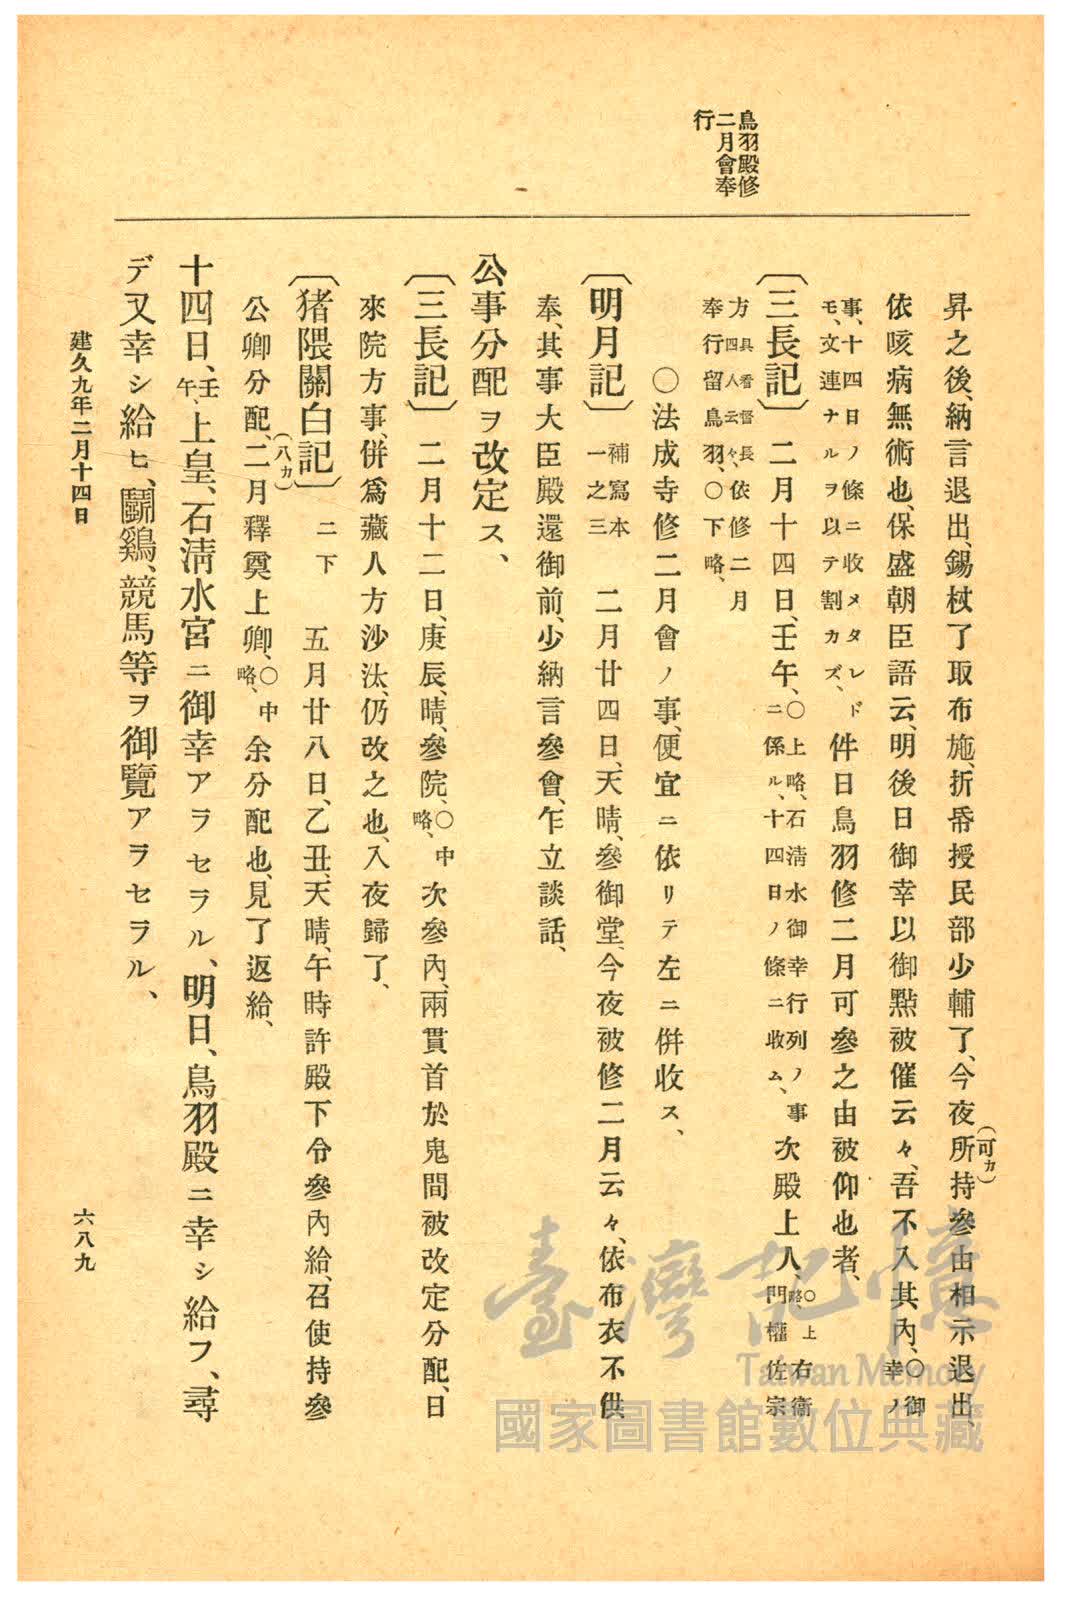 鳥羽殿修
二月會奉
行
昇之後、納言退出、錫杖了取布施、折帋授民部少輔了、今夜所持參由相示退出、
(可カ)
依咳病無術也、保盛朝臣語云、明後日御幸以御㸃被催云々、吾不入其內、〇御幸ノ
事、十四日ノ條ニ收メタレド
モ、文連ナルヲ以テ割カズ、
件日鳥羽修二月可參之由被仰也者、
〔三長記〕 二月十四日、壬午、〇上略、石淸水御幸行列ノ事
ニ係ル、十四日ノ條ニ收ム、
次殿上人、〇上略、
右衞門權佐宗
方具看督長
四人云々、
依修二月
奉行留鳥羽、〇下略、
〇法成寺修二月會ノ事、便宜ニ依リテ左ニ併收ス、
〔明月記〕 補寫本
一之三
二月廿四日、天晴、參御堂、今夜被修二月云々、依布衣不供
奉、其事大臣殿還御前、少納言參會、乍立談話、
公事分配ヲ改定ス、
〔三長記〕 二月十二日、庚辰、晴、參院、〇中略、次參內、兩貫首於鬼間被改定分配、日
來院方事、併爲藏人方沙汰、仍改之也、入夜歸了、
〔猪隈關白記〕 二下 五月廿八日、乙丑、天晴、午時許殿下令參內給、召使持參
公卿分配、二月釋奠上卿、〇中略、余分配也、見了返給、
(八カ)
十四日、壬午、上皇、石淸水宮ニ御幸アラセラル、明日、鳥羽殿ニ幸シ給フ、尋
デ又幸シ給ヒ、鬪鷄、競馬等ヲ御覽アラセラル、
建久九年二月十四日
六八九
臺灣記憶
Taiwan Memory
國家圖書館數位典藏